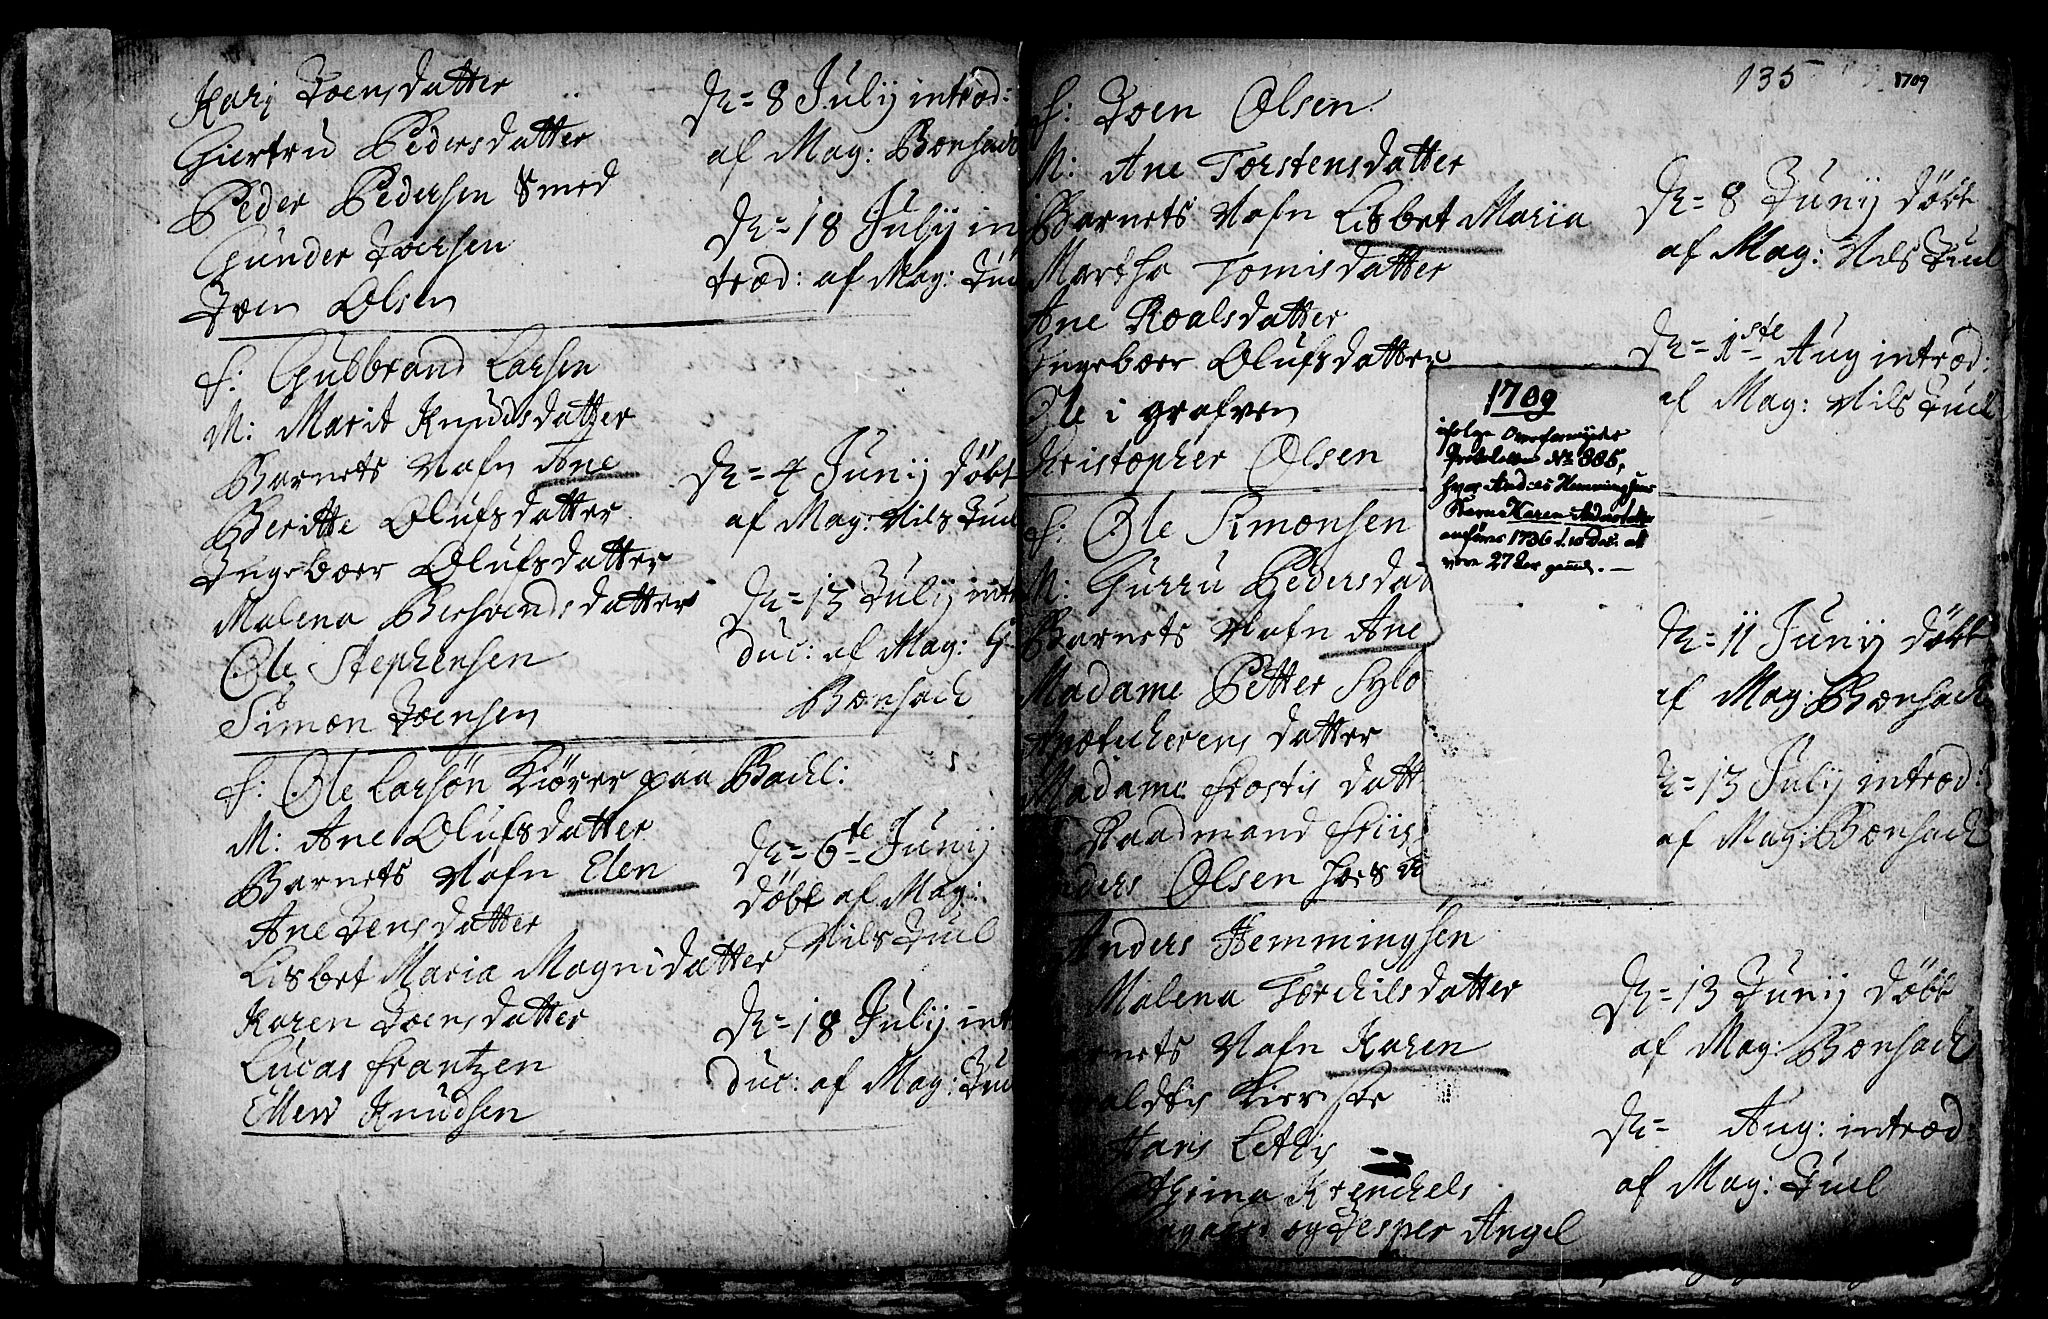 Karj Joensdatter
Giertru Pedersdatter
Peder Pedersen Smed
Gunder Joensen
Joen Olsen
D= 8 Julij introd:
af Mag: Bænsach
D= 18 Julij in
trod: af Mag: Juu
f: Gulbrand Larsen
M: Marit Knudsdatter
Barnets Nafn Ane
Beritte Olufsdatter
Ingeboer Olufsdatter
Malena Bersvendsdatter
Ole Stephensen
Simon Joensen
D= 4 Junij døbt
af Mag: Nils Juul
D= 13 Julij intr
duc: af Mag: G
Bænsach
f: Ole Larsøn Kiører paa Bachl:
M: Ane Olufsdatter
Barnets Nafn Elen
Ane Jensdatter
Lisbet Maria Magnisdatter
Karen Joensdatter
Lucas Frantzen
Ellew Knudsen
D= 6te Junij
døbt af Mag:
Nils Juul
D= 18 Julij int
duc: af Mag: Juu
135 1709
f: Joen Olsen
M: Ane Torstensdatter
Barnets Nafn Lisbet Maria
Martha Tomisdatter
Ane Roalsdatter
Ingeboer Olufsdatter
Ole i grafven
Christopher Olsen
D= 8 Junij døbt
af Mag: Nils Juul
D= 1ste Aug introd:
af Mag: Nils Juul
1709
ifølge Overformynder
Protokollen No 885,
hvor Anders Hemmingsens
Barn Karen Andersdatter
anføres 1736 d. 10 Dec. at
være 27 Aar gaml. —
f: Ole Simonsen
M: Gurru Pedersdat
Barnets Nafn Ane
Madame Petter Sylo
Apotecherens datter
Madame Frostis datt
Raadmand Friis
Anders Olsen hos
D= 11 Junij døbt
af Mag: Bænsach
D= 13 Julij introd:
af Mag: Bænsach
Anders Hemmingsen
Malena Torchilsdatter
rnets Nafn Karen
Kierste
Hans Letkis
Krenchels
og Jesper Angel
D= 13 Junij døbt
af Mag: Bænsach
D= Aug: introd
af Mag: Juul